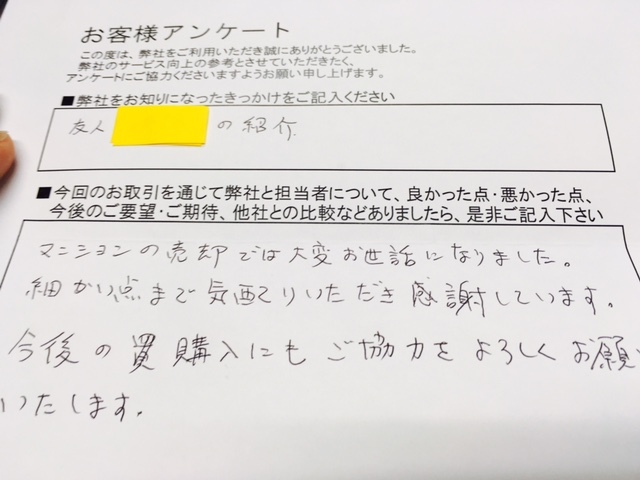 お客様アンケート
この度は、弊社をご利用いただき誠にありがとうございました。
弊社のサービス向上の参考とさせていただきたく、
アンケートにご協力くださいますようお願い申し上げます。
■弊社をお知りになったきっかけをご記入ください
友人 の紹介
■今回のお取引を通じて弊社と担当者について、良かった点・悪かった点、
今後のご要望・ご期待、他社との比較などありましたら、是非ご記入下さい
マンションの売却では大変お世話になりました。
細かい点まで気配りいただき感謝しています。
今後の買購入にもご協力をよろしくお願い
いたします。